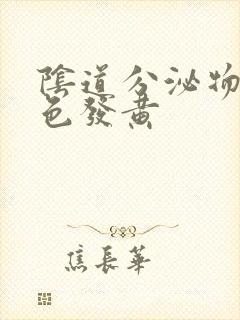 陰道分泌物
色發黃
焦長華